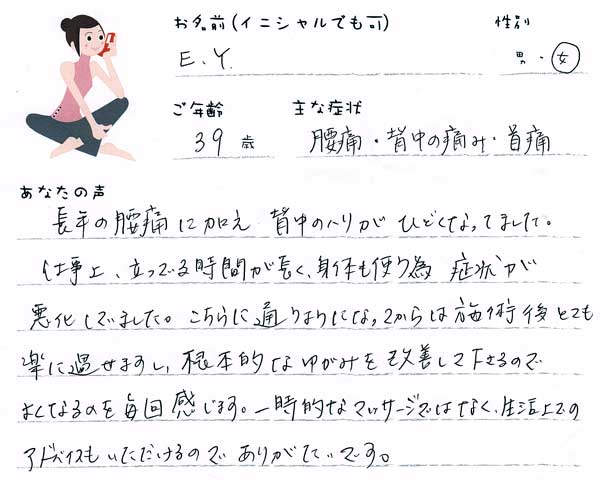 お名前(イニシャルでも可) 性別
E.Y. 男・女
ご年齢 主な症状
39歳 腰痛・背中の痛み・首痛
あなたの声
長年の腰痛に加え 背中のハリが ひどくなってました。
仕事上、立ってる時間が長く、身体も使う為 症状が
悪化してました。こちらに通うようになってからは施術後とても
楽に過せますし、根本的なゆがみを改善して下さるので
よくなるのを毎回感じます。一時的なマッサージではなく、生活上での
アドバイスもいただけるので ありがたいです。